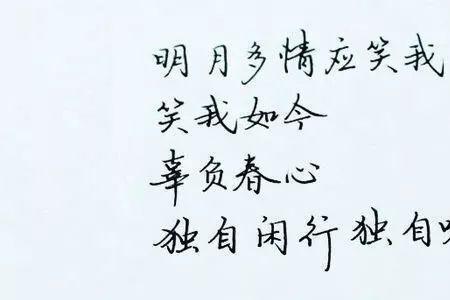 明月多情应笑我
笑我如今
辜负春心
独自闲行独自